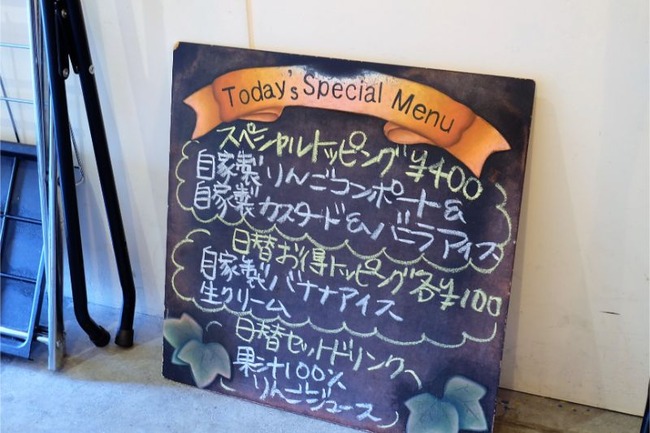 Today's Special Menu
スペシャルトッピング ¥400
自家製りんごコンポート&
自家製カスタード&バニラアイス
日替お得トッピング各¥100
自家製バナナアイス
生クリーム
日替セットドリンク
果汁100%
りんごジュース